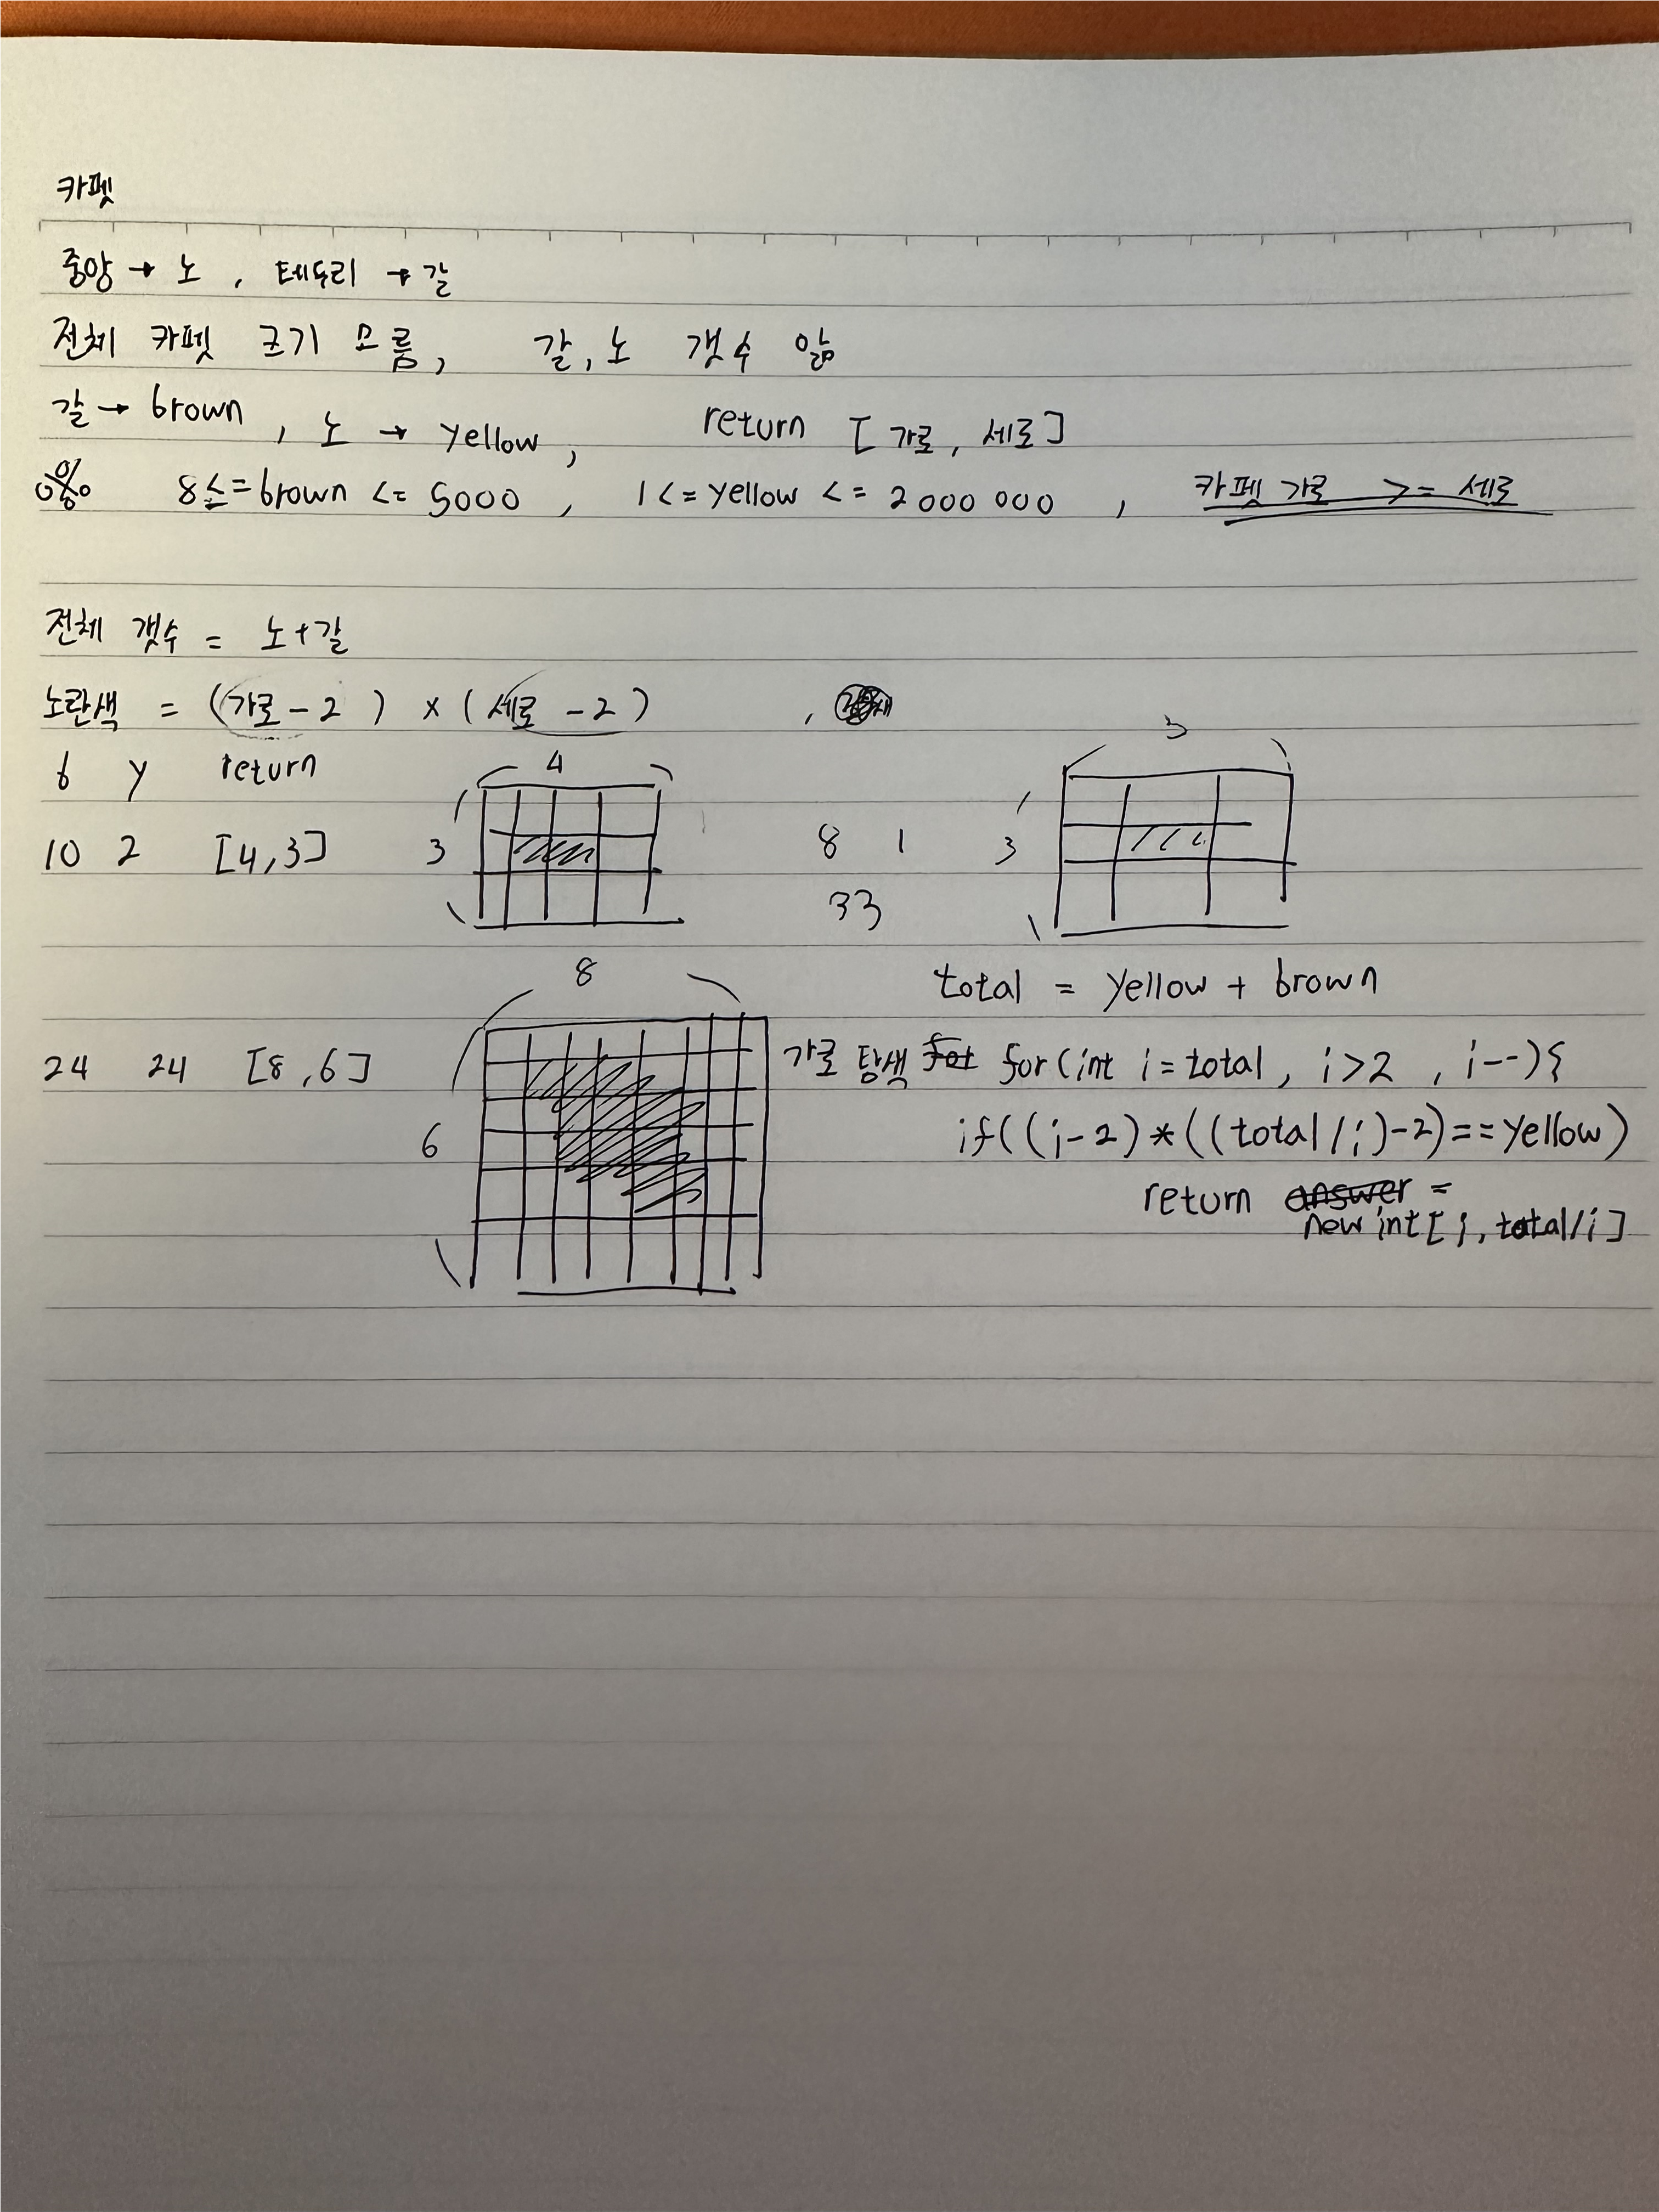 카펫
중앙 → 노 , 테두리 → 갈
전체 카펫 크기 모름, 갈, 노 갯수 앎
갈 → brown , 노 → yellow , return [ 가로, 세로 ]
8 <= brown <= 5000 , 1 <= yellow <= 2 000 000 , 카펫 가로 >= 세로
전체 갯수 = 노+갈
노란색 = (가로 - 2 ) × ( 세로 - 2 ) ,
b y return
4
3
10 2 [4,3]
3
8 1
3
33
total = yellow + brown
8
24 24 [8,6]
6
가로 탐색 for for (int i = total , i>2 , i--){
if((i-2)*((total/i)-2)==yellow)
return answer =
new int[ i, total/i ]